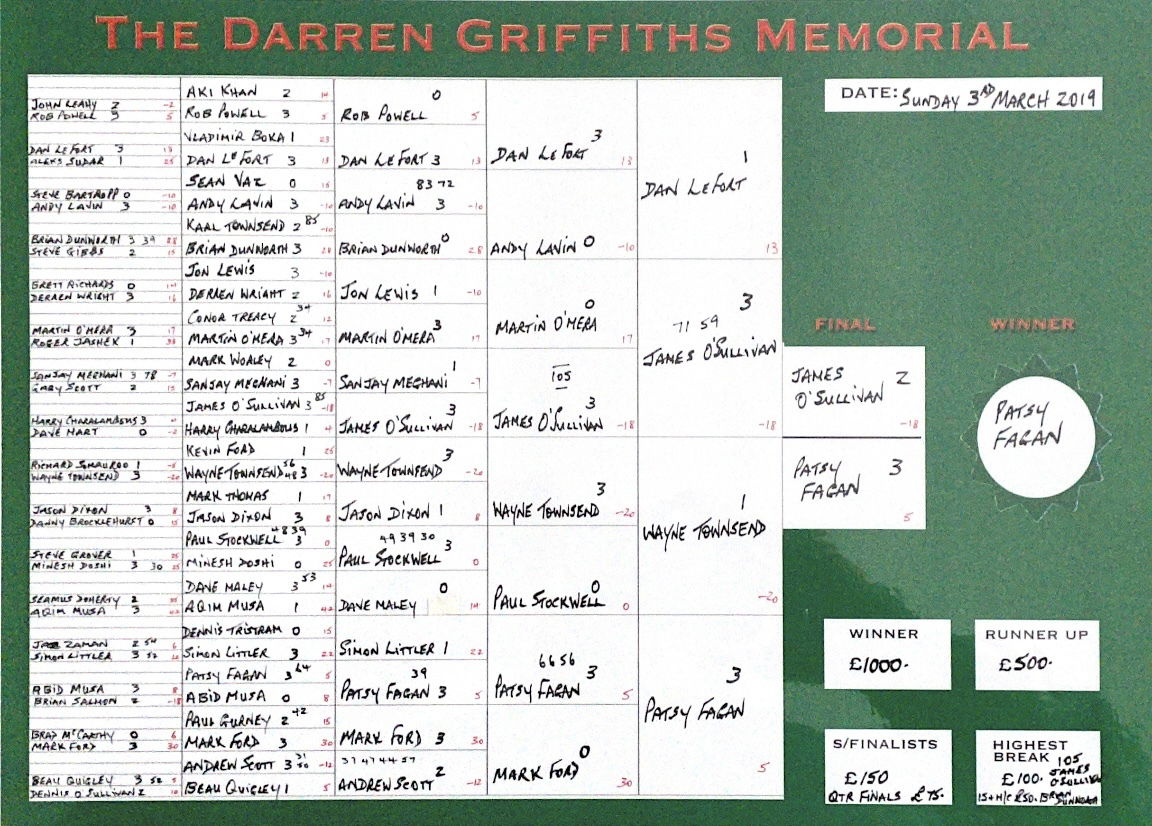 THE DARREN GRIFFITHS MEMORIAL
DATE: SUNDAY 3RD MARCH 2019
JOHN LEAHY 2 -2
ROB POWELL 3 5
DAN LE FORT 3 13
ALEKS SUDAR 1 25
STEVE BARTROPP 0 -10
ANDY LAVIN 3 -10
BRIAN DUNWORTH 3 39 28
STEVE GIBBS 2 15
BRETT RICHARDS 0
DERREN WRIGHT 3 16
MARTIN O'MERA 3 17
ROGER JASHEK 1
SANJAY MEGHANI 3 78 -7
GARY SCOTT 2 15
HARRY CHARALAMBOUS 3
DAVE HART 0 -2
RICHARD 1 -5
WAYNE TOWNSEND 3 -20
JASON DIXON 3 8
DANNY BROCKLEHURST 0 15
STEVE GROVER 1 25
MINESH DOSHI 3 30 25
SEAMUS DOHERTY 2
AQIM MUSA 3 42
JAZ ZAMAN 2 54 6
SIMON LITTLER 3 52 22
ABID MUSA 3 8
BRIAN SALMON 2 -18
BRAD McCARTHY 0 6
MARK FORD 3 30
BEAU QUIGLEY 3 52 5
DENNIS O SULLIVAN 2 10
AKI KHAN 2 14
ROB POWELL 3 5
VLADIMIR BOKA 1 23
DAN LE FORT 3 13
SEAN VAZ 0 15
ANDY LAVIN 3 -10
KARL TOWNSEND 2 85 -10
BRIAN DUNWORTH 3 28
JON LEWIS 3 -10
DERREN WRIGHT 2 16
CONOR TREACY 2 34 12
MARTIN O'MERA 3 34 17
MARK WORLEY 2 0
SANJAY MEGHANI 3 -7
JAMES O'SULLIVAN 3 85 -18
HARRY CHARALAMBOUS 1 4
KEVIN FORD 1 25
WAYNE TOWNSEND 56 48 3 -20
MARK THOMAS 1 17
JASON DIXON 3 8
PAUL STOCKWELL 48 39 3 0
MINESH DOSHI 0 25
DAVE MALEY 3 53 14
AQIM MUSA 1 42
DENNIS TRISTRAM 0 15
SIMON LITTLER 3 22
PATSY FAGAN 3 64 5
ABID MUSA 0 8
PAUL GURNEY 2 42 15
MARK FORD 3 30
ANDREW SCOTT 3 31 50 -12
BEAU QUIGLEY 1 5
ROB POWELL 0 5
DAN LE FORT 3 13
83 72
ANDY LAVIN 3 -10
BRIAN DUNWORTH 0 28
JON LEWIS 1 -10
MARTIN O'MERA 3 17
SANJAY MEGHANI 1 -7
JAMES O'SULLIVAN 3 -18
WAYNE TOWNSEND 3 -20
JASON DIXON 1 8
49 39 30
PAUL STOCKWELL 3 0
DAVE MALEY 0 14
SIMON LITTLER 1 22
39
PATSY FAGAN 3 5
MARK FORD 3 30
37 47 44 57
ANDREW SCOTT 2 -12
DAN LE FORT 3 13
ANDY LAVIN 0 -10
MARTIN O'MERA 0 17
105
JAMES O'SULLIVAN 3 -18
WAYNE TOWNSEND 3 -20
PAUL STOCKWELL 0 0
66 56
PATSY FAGAN 3 5
MARK FORD 0 30
DAN LEFORT 1 13
71 59 3
JAMES O'SULLIVAN -18
WAYNE TOWNSEND 1 -20
PATSY FAGAN 3 5
FINAL
JAMES O'SULLIVAN 2
-18
PATSY FAGAN 3
5
WINNER
PATSY
FAGAN
WINNER
£1000.
RUNNER UP
£500.
S/FINALISTS
£150
QTR FINALS £75.
HIGHEST
BREAK 105
£100. JAMES O'SULLIVAN